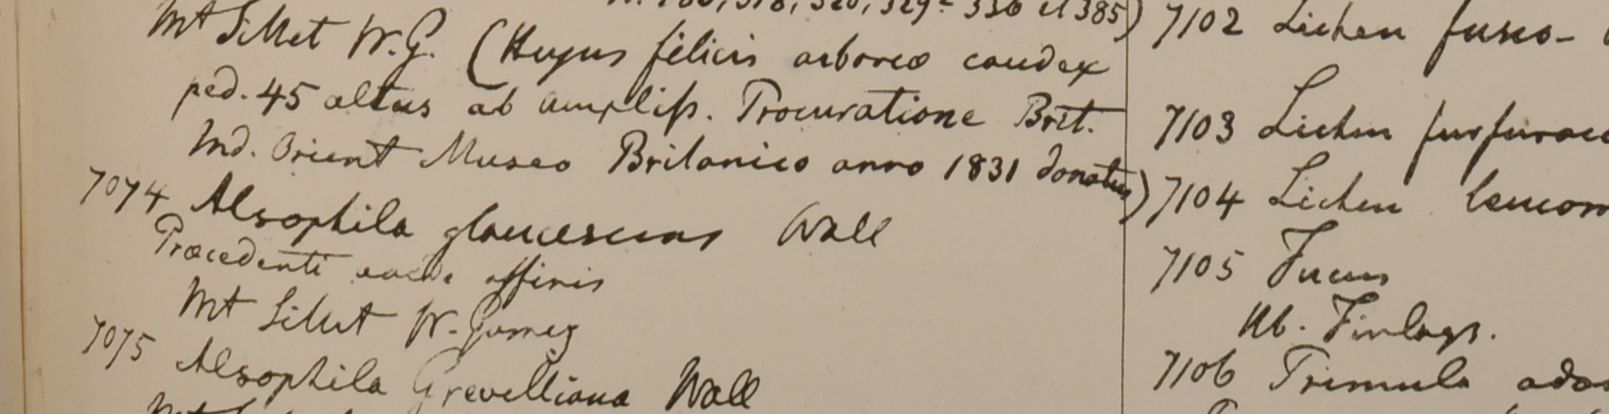 318, 320, 329 - 330 et 385)
Mt Sillet W.G. (Hujus filicis arborea caudex
ped. 45 altus ab ampliss. Procuratione Brit.
Ind. Orient Museo Britanico anno 1831 donatus)
7074 Alsophila glaucescens Wall
Præcedenti affinis
Mt Sillet W. Gomez
7075 Alsophila Grevilliana Wall
7102 Lichen fusco-
7103 Lichen furfurace
7104 Lichen leucom
7105 Fucus
Hb. Finlays.
7106 Primula